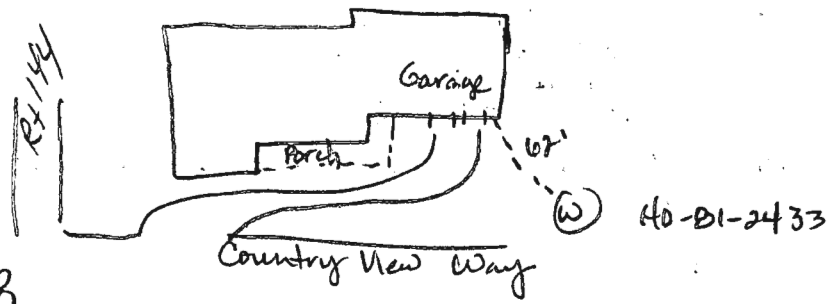 Rt 144
Garage
Porch
62'
W
HO-81-2433
Country View Way